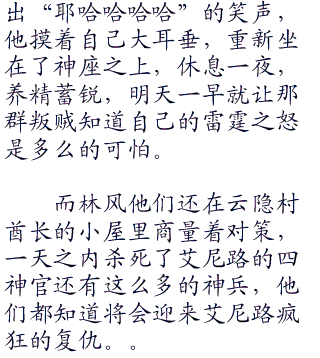 出“耶哈哈哈哈”的笑声，
他摸着自己大耳垂，重新坐
在了神座之上，休息一夜，
养精蓄锐，明天一早就让那
群叛贼知道自己的雷霆之怒
是多么的可怕。
而林风他们还在云隐村
酋长的小屋里商量着对策，
一天之内杀死了艾尼路的四
神官还有这么多的神兵，他
们都知道将会迎来艾尼路疯
狂的复仇。。